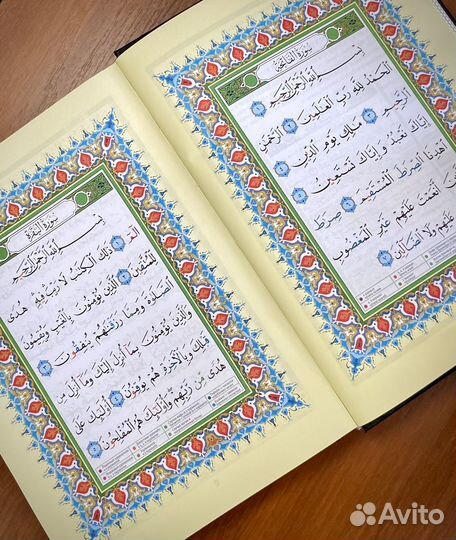 سُورَةُ الْفَاتِحَةِ
بِسْمِ اللَّهِ الرَّحْمَٰنِ الرَّحِيمِ ١
الْحَمْدُ لِلَّهِ رَبِّ الْعَٰلَمِينَ ٢ الرَّحْمَٰنِ
الرَّحِيمِ ٣ مَٰلِكِ يَوْمِ الدِّينِ ٤
إِيَّاكَ نَعْبُدُ وَإِيَّاكَ نَسْتَعِينُ ٥
اهْدِنَا الصِّرَٰطَ الْمُسْتَقِيمَ ٦ صِرَٰطَ
أَنْعَمْتَ عَلَيْهِمْ غَيْرِ الْمَغْضُوبِ
عَلَيْهِمْ وَلَا الضَّالِّينَ ٧
سُورَةُ الْبَقَرَةِ
بِسْمِ اللَّهِ الرَّحْمَٰنِ الرَّحِيمِ
الٓمٓ ١ ذَٰلِكَ الْكِتَٰبُ لَا رَيْبَ فِيهِ هُدًى
لِّلْمُتَّقِينَ ٢ الَّذِينَ يُؤْمِنُونَ بِالْغَيْبِ وَيُقِيمُونَ
الصَّلَوٰةَ وَمِمَّا رَزَقْنَٰهُمْ يُنفِقُونَ ٣
وَالَّذِينَ يُؤْمِنُونَ بِمَا أُنزِلَ إِلَيْكَ وَمَا أُنزِلَ مِن
قَبْلِكَ وَبِالْآخِرَةِ هُمْ يُوقِنُونَ ٤ أُولَٰئِكَ عَلَىٰ
هُدًى مِّن رَّبِّهِمْ وَأُولَٰئِكَ هُمُ الْمُفْلِحُونَ ٥
Avito